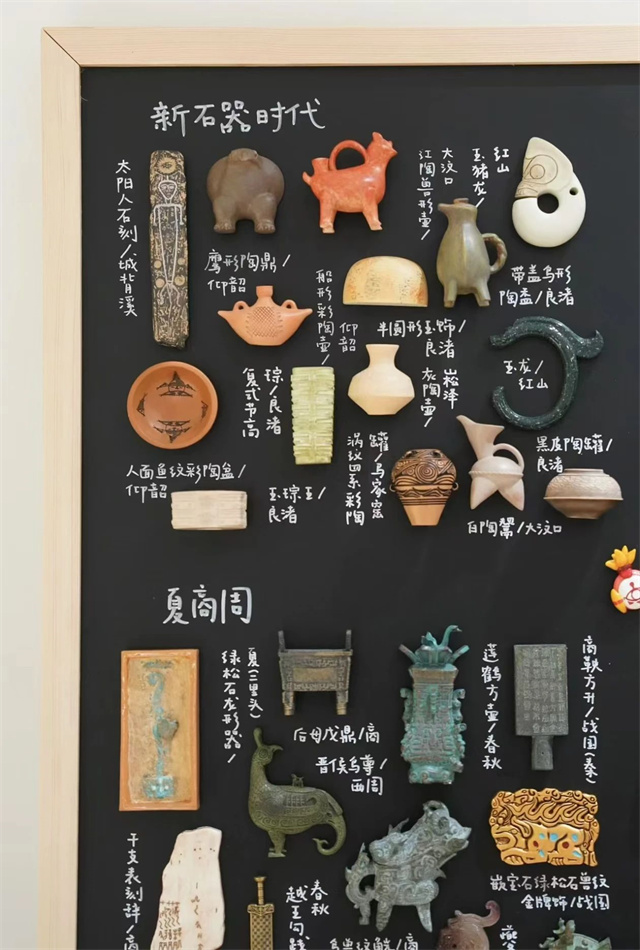 新石器时代
太阳人石刻/城背溪
鹰形陶鼎/
仰韶
大汶口
红陶兽形壶/
红山
玉猪龙/
带盖鸟形
陶盉/良渚
船形彩陶壶/
仰韶
半圆形玉饰/
良渚
玉龙/
红山
琮/良渚
复式节高
崧泽
灰陶壶/
人面鱼纹彩陶盆/
仰韶
玉琮王/
良渚
罐/马家窑
涡纹四系彩陶
黑皮陶罐/
良渚
白陶鬶/大汶口
夏商周
夏(二里头)
绿松石龙形器/
后母戊鼎/商
晋侯鸟尊/
西周
莲鹤方壶/春秋
商鞅方升/战国(秦)
嵌宝石绿松石兽纹
金牌饰/战国
干支表刻辞/商
春秋
越王勾践